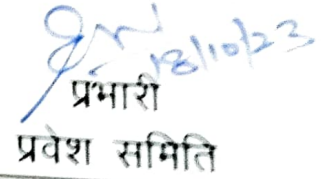 18/10/23
प्रभारी
प्रवेश समिति